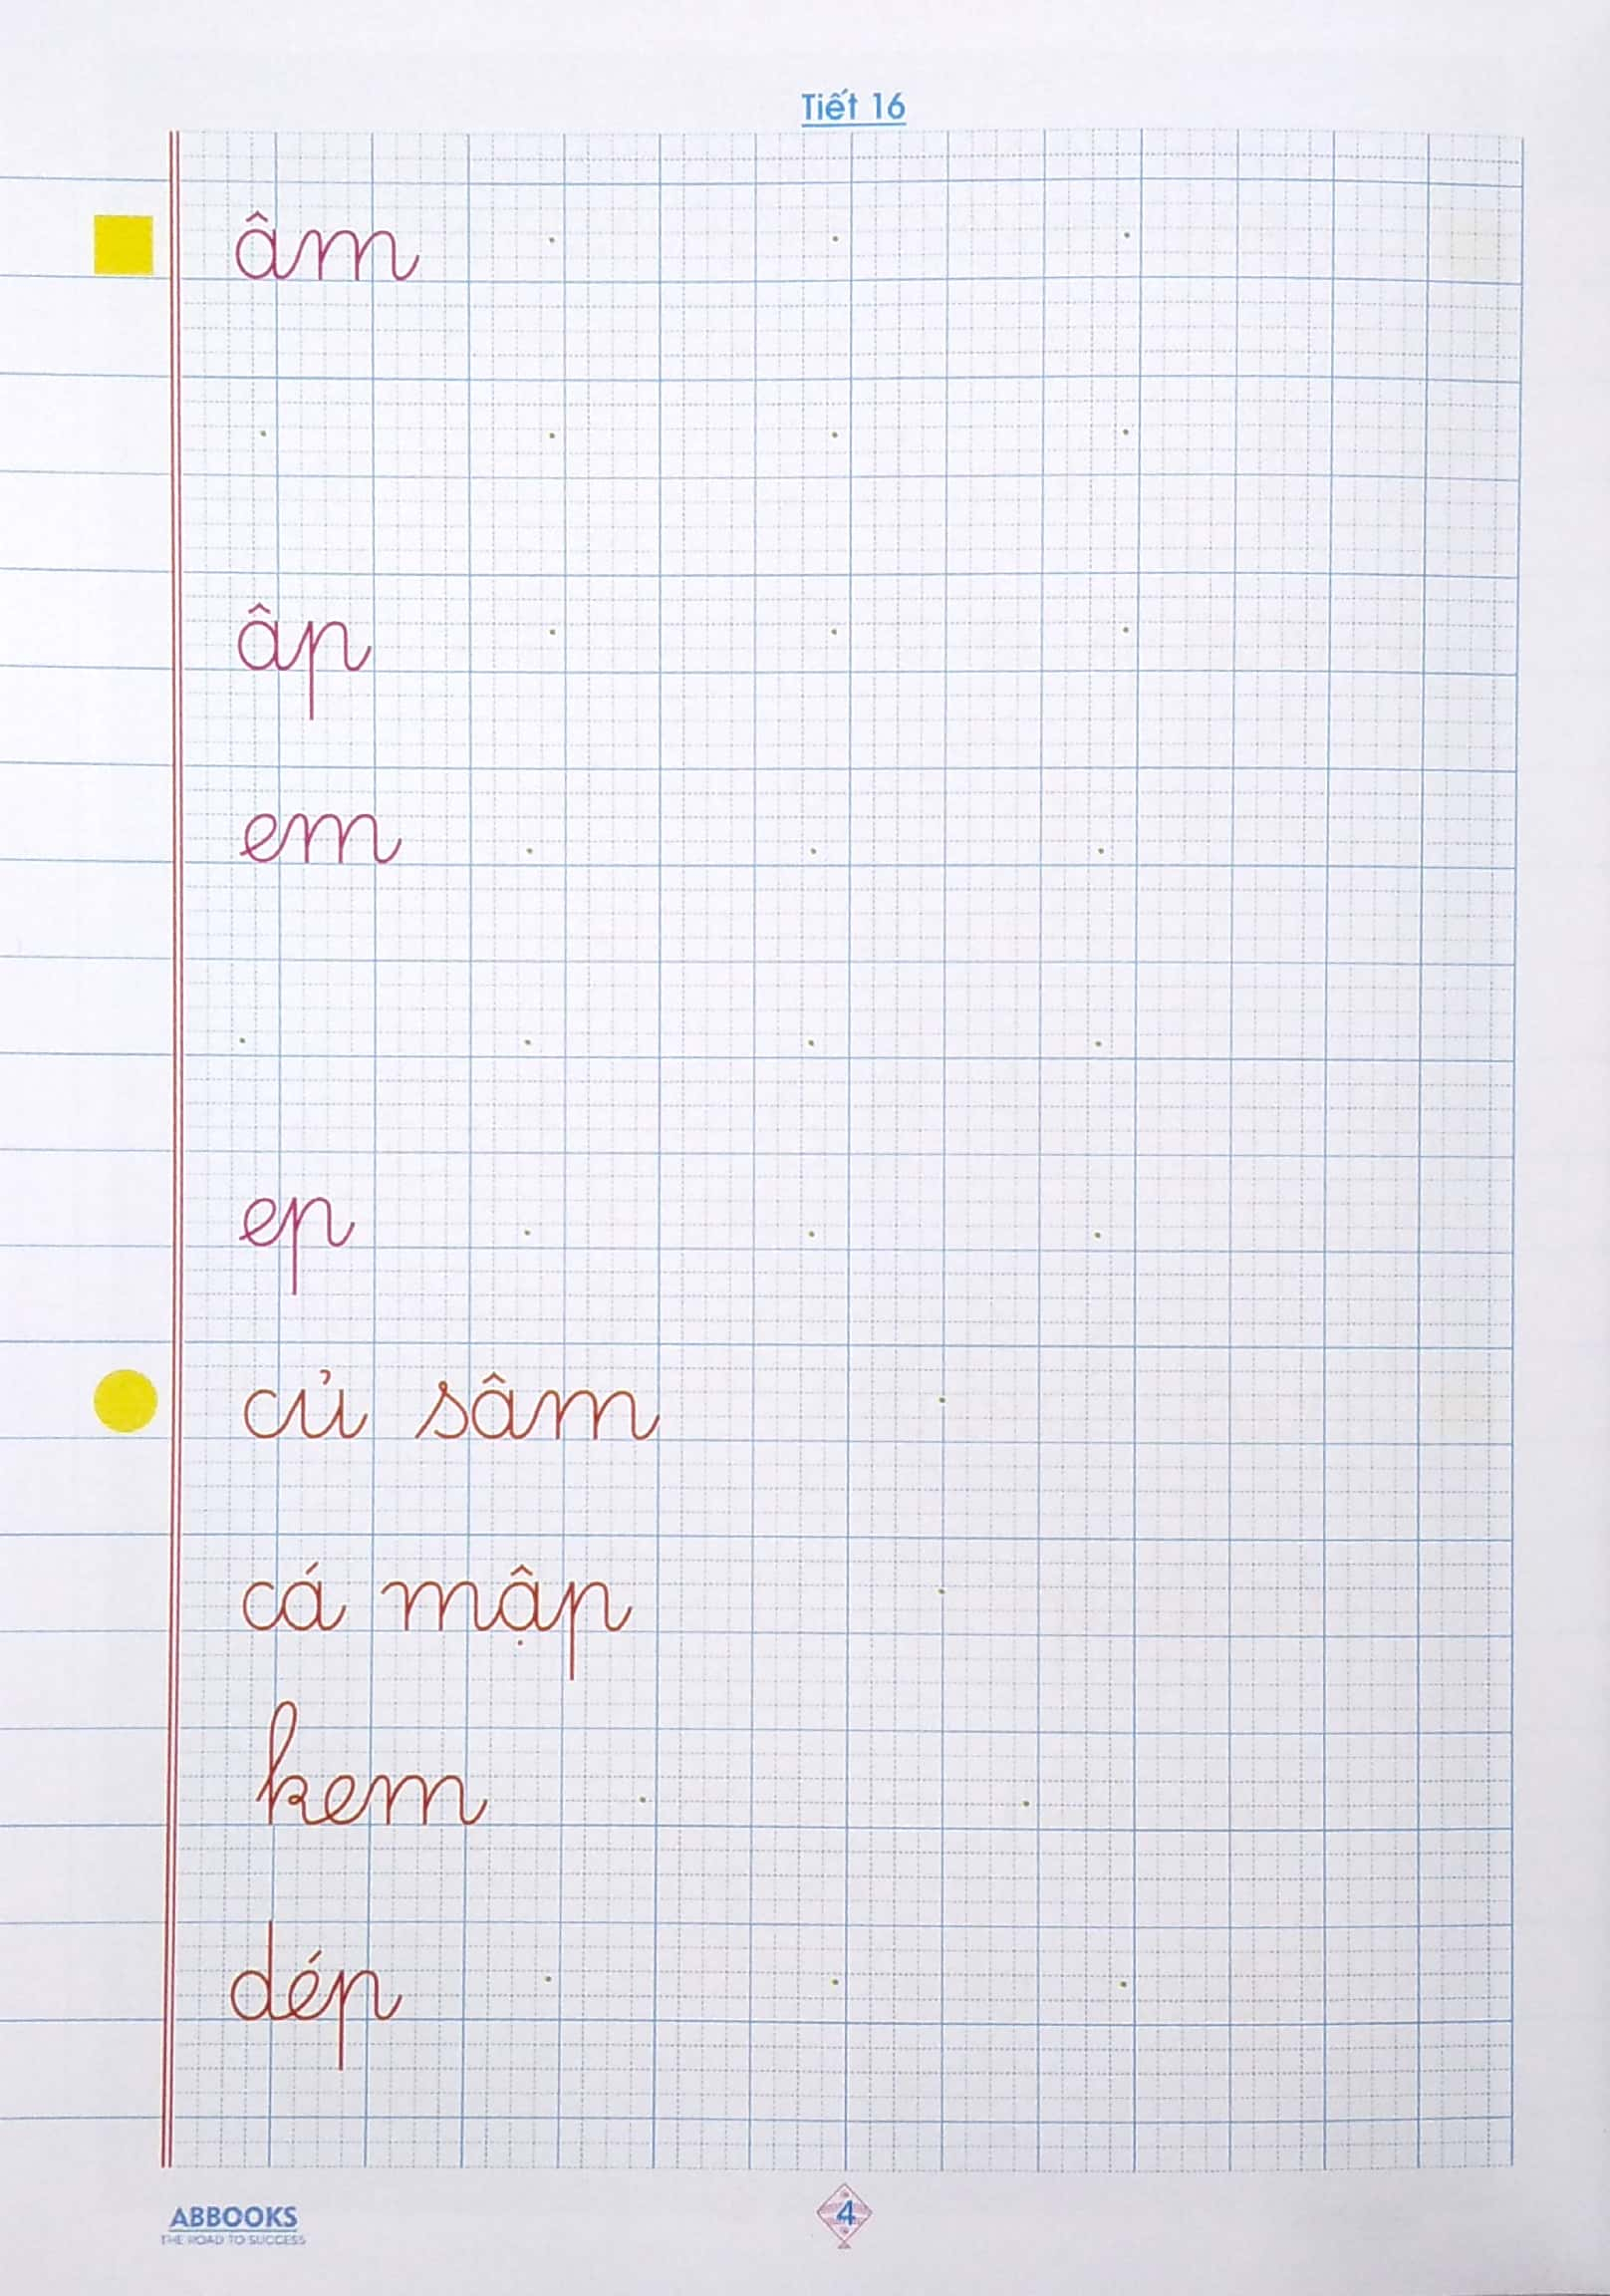 Tiết 16
âm
âp
em
ep
củ sâm
cá mập
kem
dép
ABBOOKS
THE ROAD TO SUCCESS
4